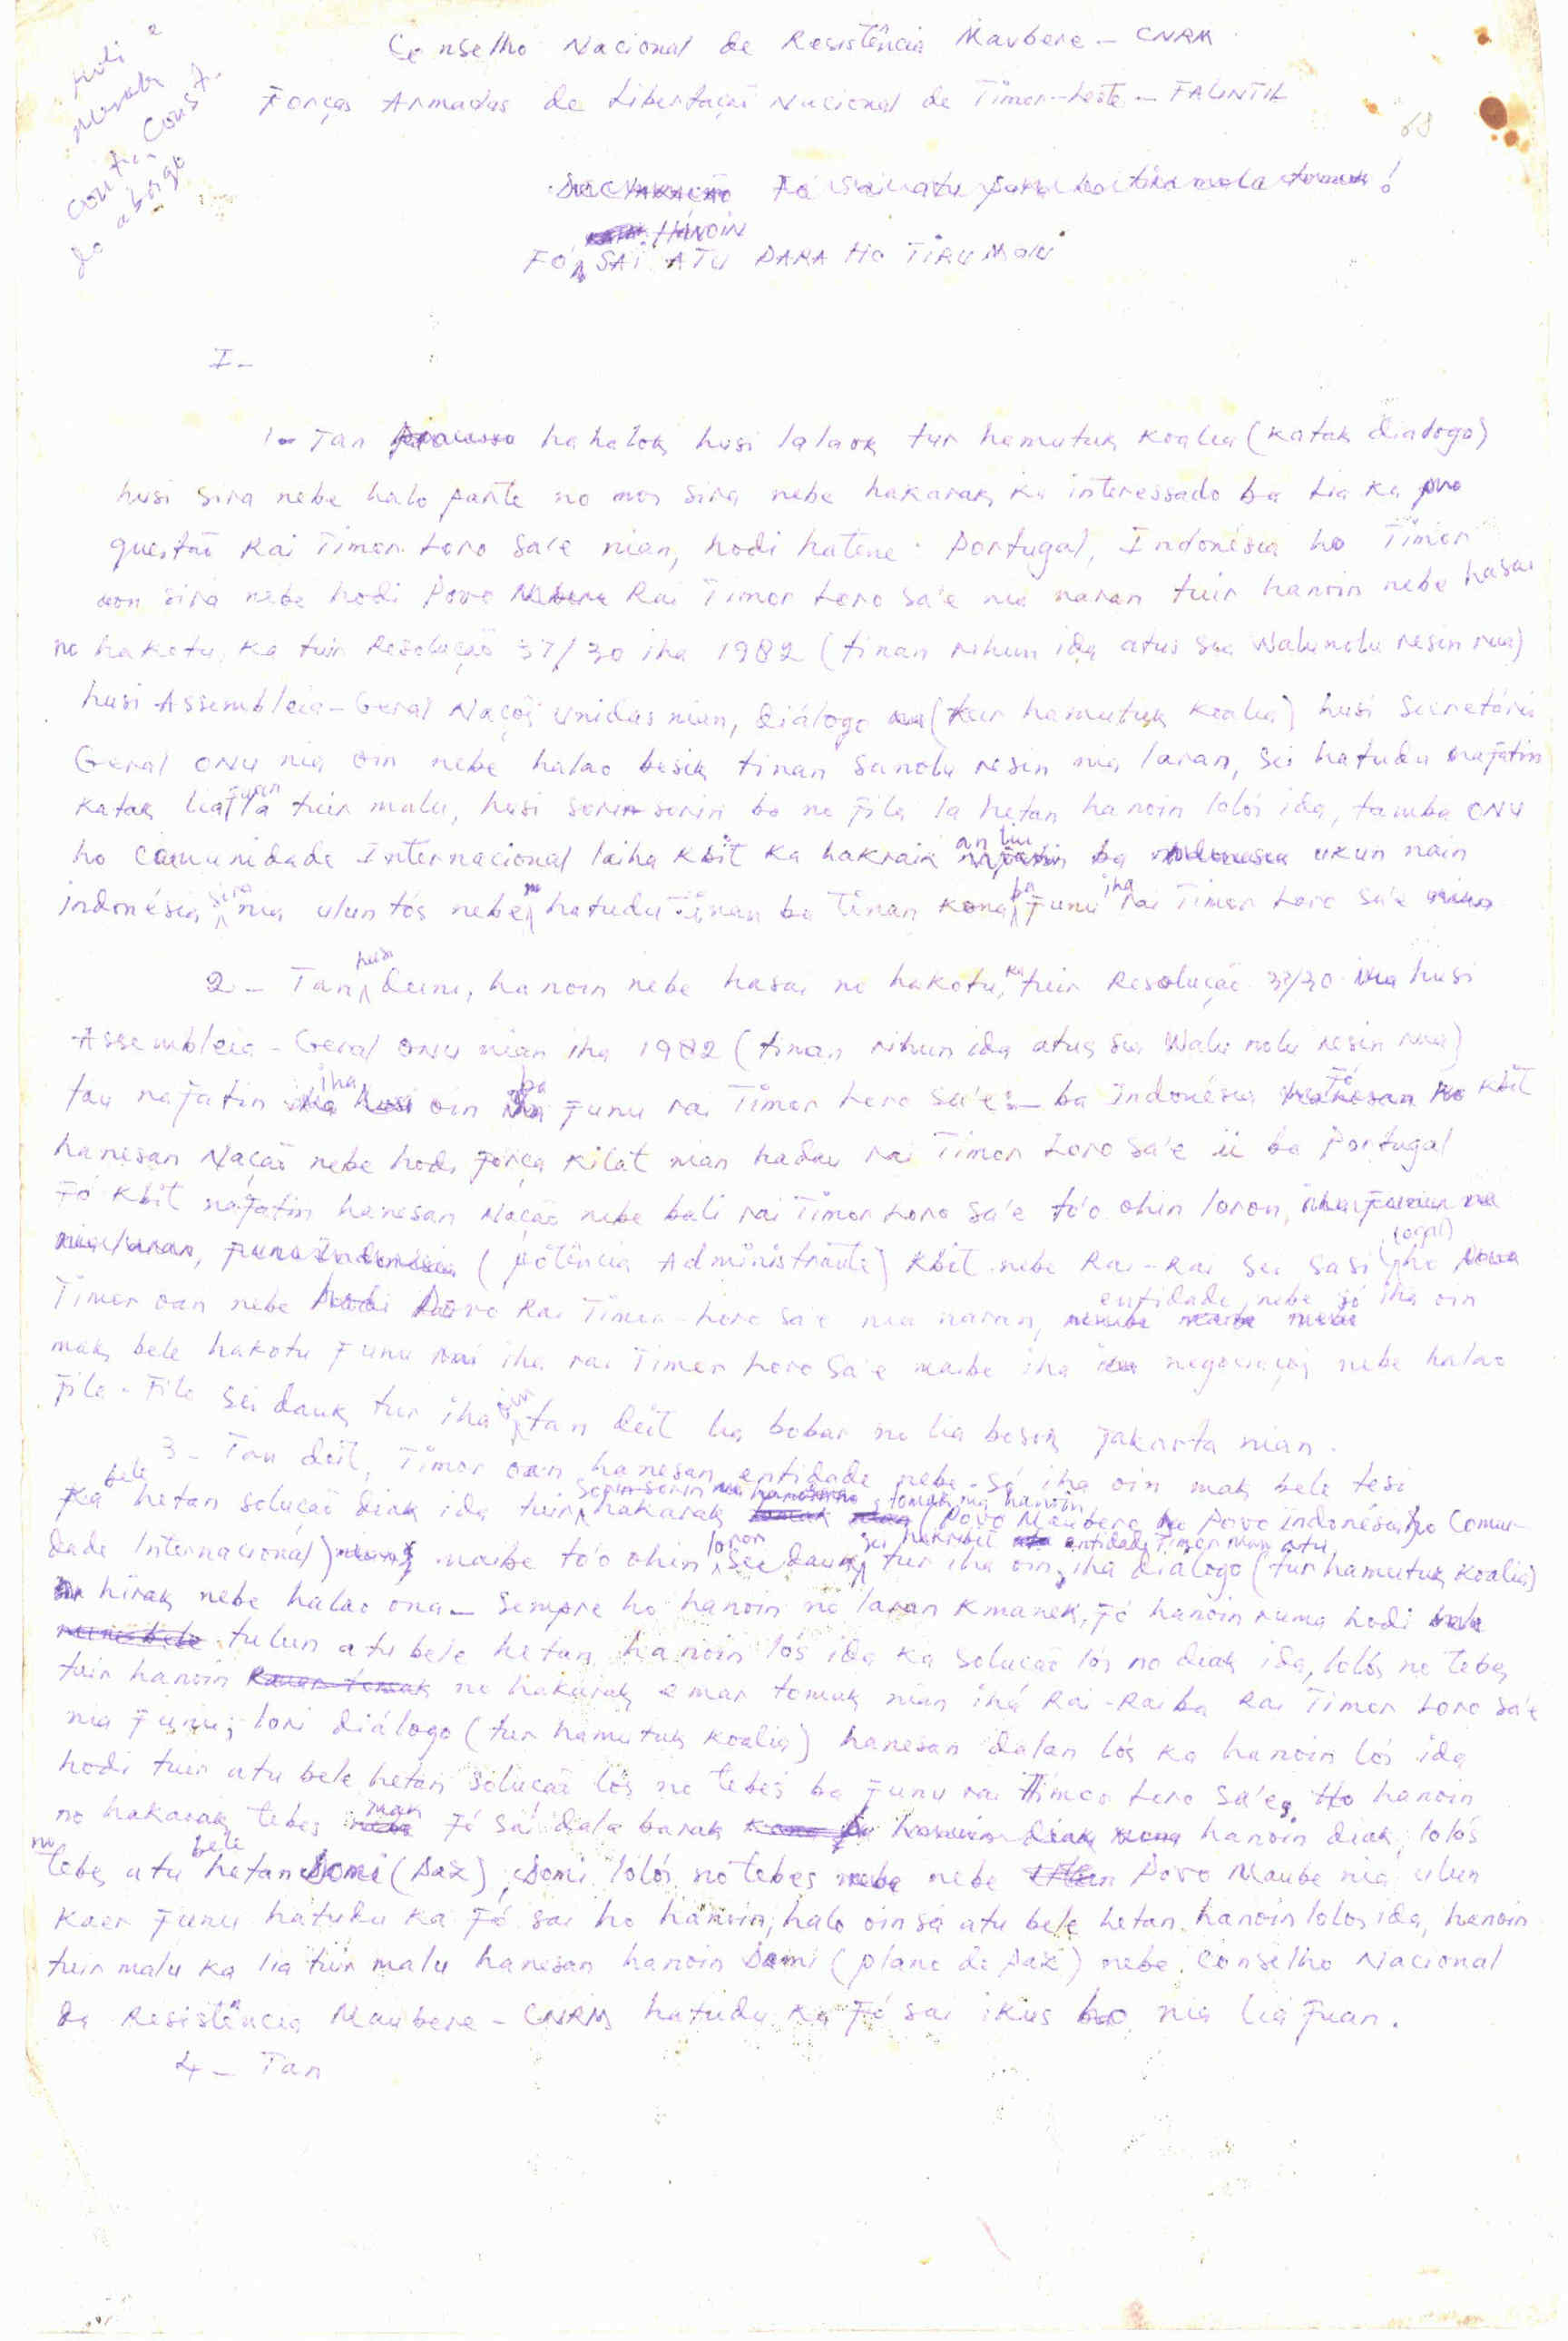 Conselho Nacional de Resistência Maubere - CNRM
Forças Armadas de Libertação Nacional de Timor-Leste - FALINTIL
68
HANOIN
FÓ SAI ATU PARA HO TIRU MALU
I -
1 - Tan hahalok husi lalaok tur hamutuk koalia (katak diálogo)
husi sira nebe halo parte no mos sira nebe hakarak ka interessado ba lia ka
questão Rai Timor Loro Sa'e nian, hodi hatene: Portugal, Indonésia ho Timor
oan sira nebe hodi Povo Rai Timor Loro Sa'e nia naran tuir hanoin nebe hasai
no hakotu, ka tuir Resolução 37/30 iha 1982 (tinan rihun ida atus sia walunolu resin rua)
husi Assembleia-Geral Nações Unidas nian, diálogo (tur hamutuk koalia) husi Secretário
Geral ONU nia oin nebe halao besik tinan sanolu resin nia laran, sei hatudu nafatin
katak lia fuan la tuir malu, husi sorin-sorin ba no fila la hetan hanoin lolós ida, tamba ONU
ho Comunidade Internacional laiha kbiit ka hakraik an liu ba ukun nain
indonésia sira nia ulun tós nebe hatudu tinan ba tinan kona ba funu iha rai Timor Loro Sa'e
2 - Tan husi duni, hanoin nebe hasai no hakotu, ka tuir Resolução 37/30 husi
Assembleia-Geral ONU nian iha 1982 (tinan rihun ida atus sia walu nolu resin rua)
tau nafatin iha oin ba funu rai Timor Loro Sa'e: - ba Indonésia fó kbiit
hanesan Nação nebe hodi força kilat nian hadau rai Timor Loro Sa'e ii ba Portugal
fó kbiit nafatin hanesan Nação nebe bali rai Timor Loro Sa'e to'o ohin loron,
(potência Administrante) kbiit nebe Rai-Rai sei sasi ho
Timor oan nebe hodi Povo Rai Timor-Loro Sa'e nia naran, entidade nebe só iha oin
mak bele hakotu funu iha rai Timor Loro Sa'e maibe iha negociações nebe halao
fila-fila sei dauk tur iha oin tan deit lia bobar no lia bosok Jakarta nian.
3 - Tan deit, Timor oan hanesan entidade nebe só iha oin mak bele tesi
ka bele hetan solução diak ida tuir sorin-sorin hakarak tomak nia hanoin (Povo Maubere Povo indonésia ho Comuni-
dade Internacional) maibe to'o ohin loron sei dauk tur iha oin, iha diálogo (tur hamutuk koalia)
hirak nebe halao ona - Sempre ho hanoin no laran kmanek, fó hanoin ruma hodi
tulun atu bele hetan hanoin lós ida ka solução lós no diak ida, lolós no tebes
tuir hanoin no hakarak emar tomak nian iha Rai-Rai ba Rai Timor Loro Sa'e
nia funu; lori diálogo (tur hamutuk koalia) hanesan dalan lós ka hanoin lós ida
hodi tuir atu bele hetan solução lós no tebes ba funu rai Timor Loro Sa'e, Ho hanoin
no hakarak tebes mak fó sai dala barak hanoin diak, lolós
no tebes atu bele hetan Domi (Paz), Domi lolós no tebes nebe Povo Maube nia ulun
kaer funu hatudu ka fó sai ho hanoin; halo oin sá atu bele hetan hanoin lolos ida, hanoin
tuir malu ka lia tuir malu hanesan hanoin Domi (plano de paz) nebe Conselho Nacional
da Resistência Maubere - CNRM hatudu ka fó sai ikus nia lia fuan.
4 - Tan